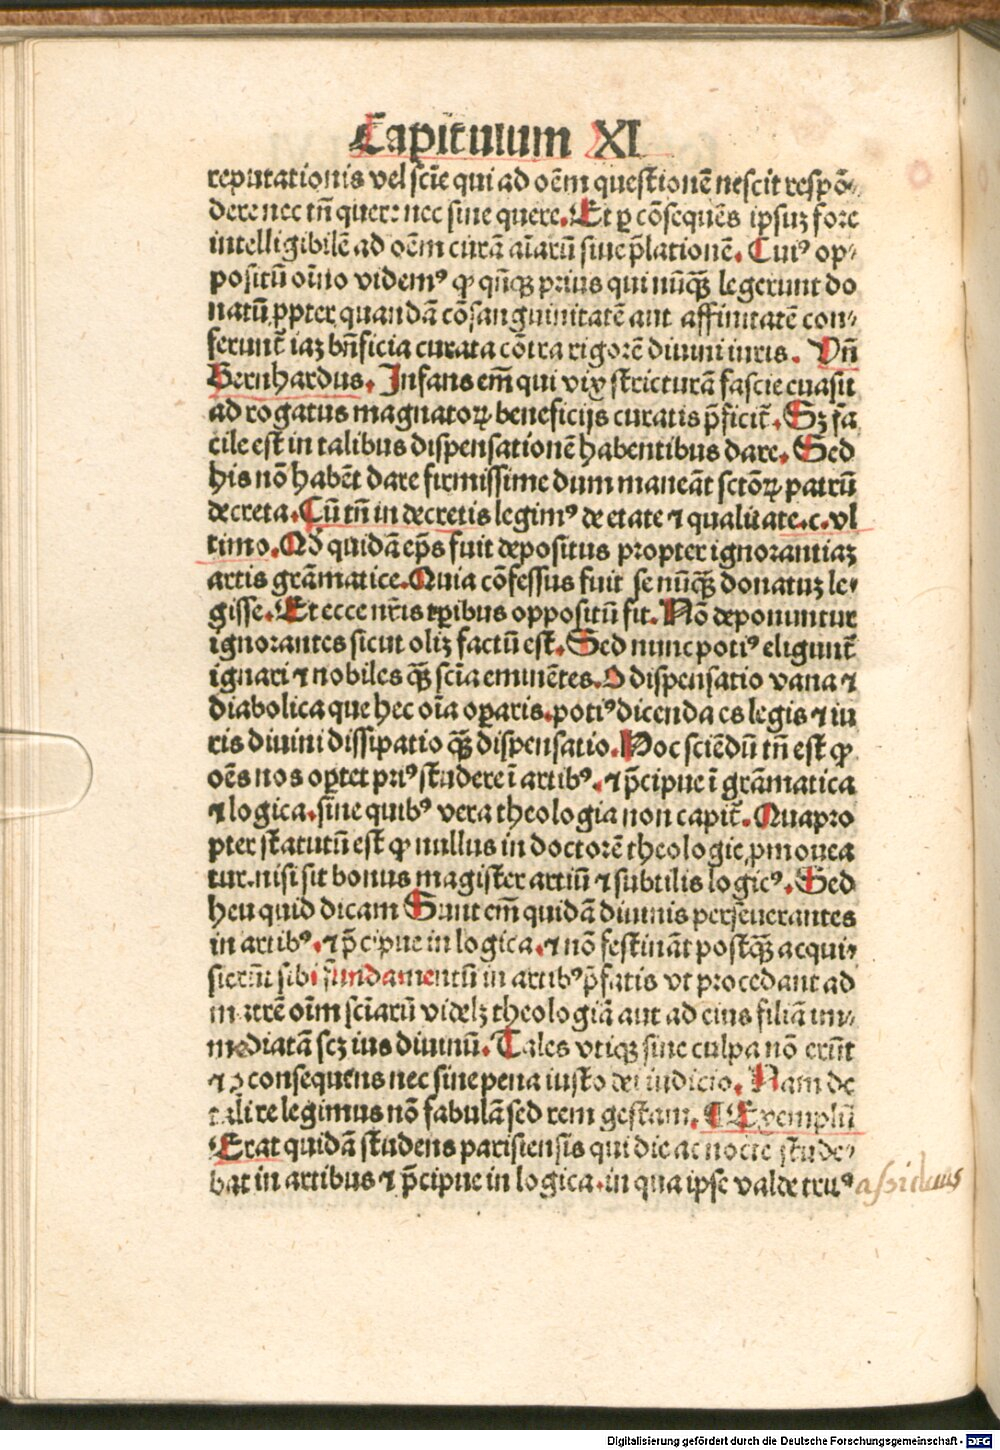 Capitulum XI
reputationis vel scie qui ad oēm questionē nescit respō⸗
dere nec tñ quere nec sine quere. Et ꝑ cōsequēs ipsuꝫ fore
intelligibilē ad oēm curā aīarū siue p̄lationē. Cuiꝰ op⸗
positū oīno videmꝰ ꝙ qñqꝫ prius qui nūqꝫ̄ legerunt do
natū ꝓpter quandā cōsanguinitatē aut affinitatē con⸗
ferunt̄ iaꝫ bñficia curata cōtra rigorē diuini iuris. Vñ
Bernhardus. Infans em̄ qui vix stricturā fascie euasit
ad rogatus magnatoꝝ beneficijs curatis p̄ficit̄. Sꝫ fa
cile est in talibus dispensationē habentibus dare. Sed
his nō habēt dare firmissime dum maneāt sctōꝝ patrū
decreta. Cū tñ in decretis legimꝰ de etate ⁊ qualitate. c. vl
timo. Qd̄ quidā ep̄s fuit depositus propter ignorantiaꝫ
artis grāmatice. Quia cōfessus fuit se nūqꝫ̄ donatuꝫ le⸗
gisse. Et ecce nr̄is tꝑibus oppositū fit. Nō deponuntur
ignorantes sicut oliꝫ factū est. Sed nunc potiꝰ eligunt̄
ignari ⁊ nobiles qꝫ̄ scīa eminētes. O dispensatio vana ⁊
diabolica que hec oīa oꝑaris. potiꝰ dicenda es legis ⁊ iu
ris diuini dissipatio qꝫ̄ dispensatio. Hoc sciēdū tñ est ꝙ
oēs nos oꝑtet priꝰ studere ī artibꝰ. ⁊ p̄cipue ī grāmatica
⁊ logica. sine quibꝰ vera theologia non capit̄. Quapro
pter statutū est ꝙ nullus in doctorē theologie ꝓmouea
tur. nisi sit bonus magister artiū ⁊ subtilis logicꝰ. Sed
heu quid dicam Sunt em̄ quidā diuinis perseuerantes
in artibꝰ. ⁊ p̄cipue in logica. ⁊ nō festināt postqꝫ̄ acqui⸗
sierūt sibi fundamentū in artibꝰ p̄fatis vt procedant ad
matrē oīm scīarū videlꝫ theologiā aut ad eius filiā im⸗
mediatā scꝫ ius diuinū. Tales vtiqꝫ sine culpa nō erūt
⁊ ꝑ consequens nec sine pena iusto dei iudicio. Nam de
tali re legimus nō fabulā sed rem gestam. ¶ Exemplū
Erat quidā studens parisiensis qui die ac nocte stude⸗
bat in artibus ⁊ p̄cipue in logica. in qua ipse valde truꝰ
assiduus
Digitalisierung gefördert durch die Deutsche Forschungsgemeinschaft - DFG